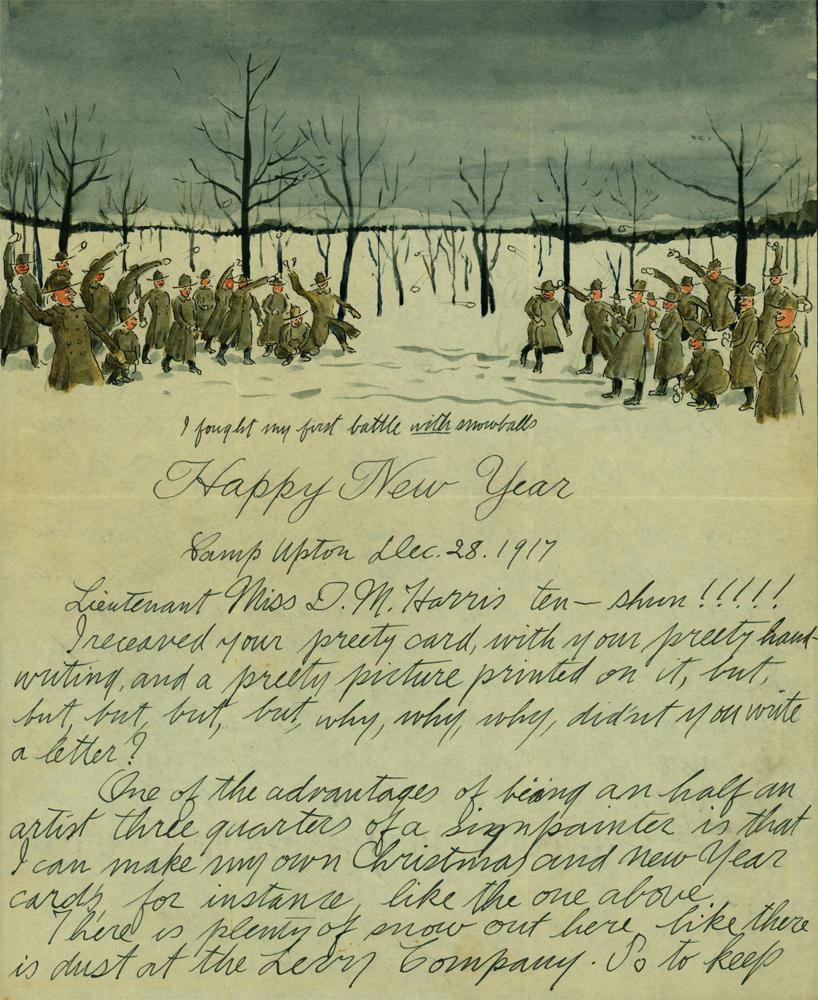 I fought my first battle with snowballs
Happy New Year
Camp Upton Dec. 28. 1917
Lieutenant Miss D. M. Harris ten— shun!!!!!
I receaved your preety card, with your preety hand-
writing, and a preety picture printed on it, but,
but, but, but, but, why, why, why, did'nt you write
a letter?
One of the advantages of being an half an
artist three quarters of a signpainter is that
I can make my own Christmas and new Year
cards, for instance, like the one above.
There is plenty of snow out here, like there
is dust at the Levy Company. So to keep